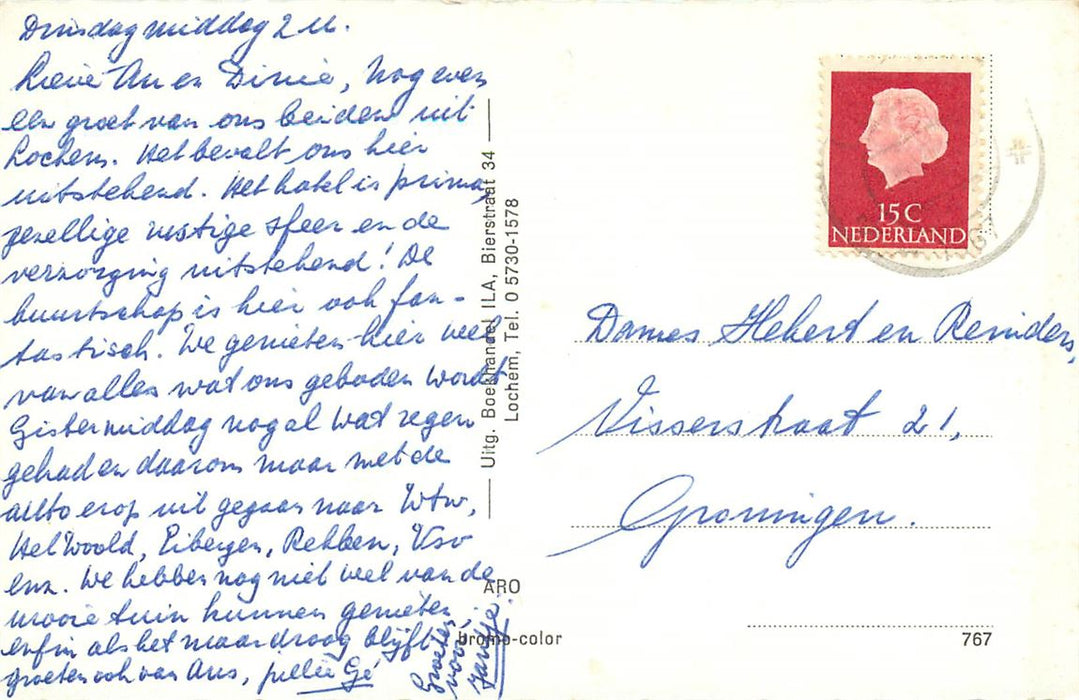 Dinsdagmiddag 2 u.
Lieve An en Dinie, Nog even
een groet van ons beiden uit
Lochem. Het bevalt ons hier
uitstekend. Het hotel is prima,
gezellige rustige sfeer en de
verzorging uitstekend! De
buurtschap is hier ook fan-
tastisch. We genieten hier veel
van alles wat ons geboden wordt
Gistermiddag nogal wat regen
gehad en daarom maar met de
auto erop uit gegaan naar Wtw,
Het Woold, Eibergen, Rekken,
enz. We hebben nog niet veel van de
mooie tuin kunnen genieten,
enfin als het maar droog blijft
groeten ook van Ans, jullie Gé
Groeten
voor
Jantje.
Uitg. Boekhandel ILA, Bierstraat 34
Lochem, Tel. 0 5730-1578
ARO
bromo-color
15 C
NEDERLAND
Dames Hekert en Reinders,
Visserstraat 21,
Groningen.
767